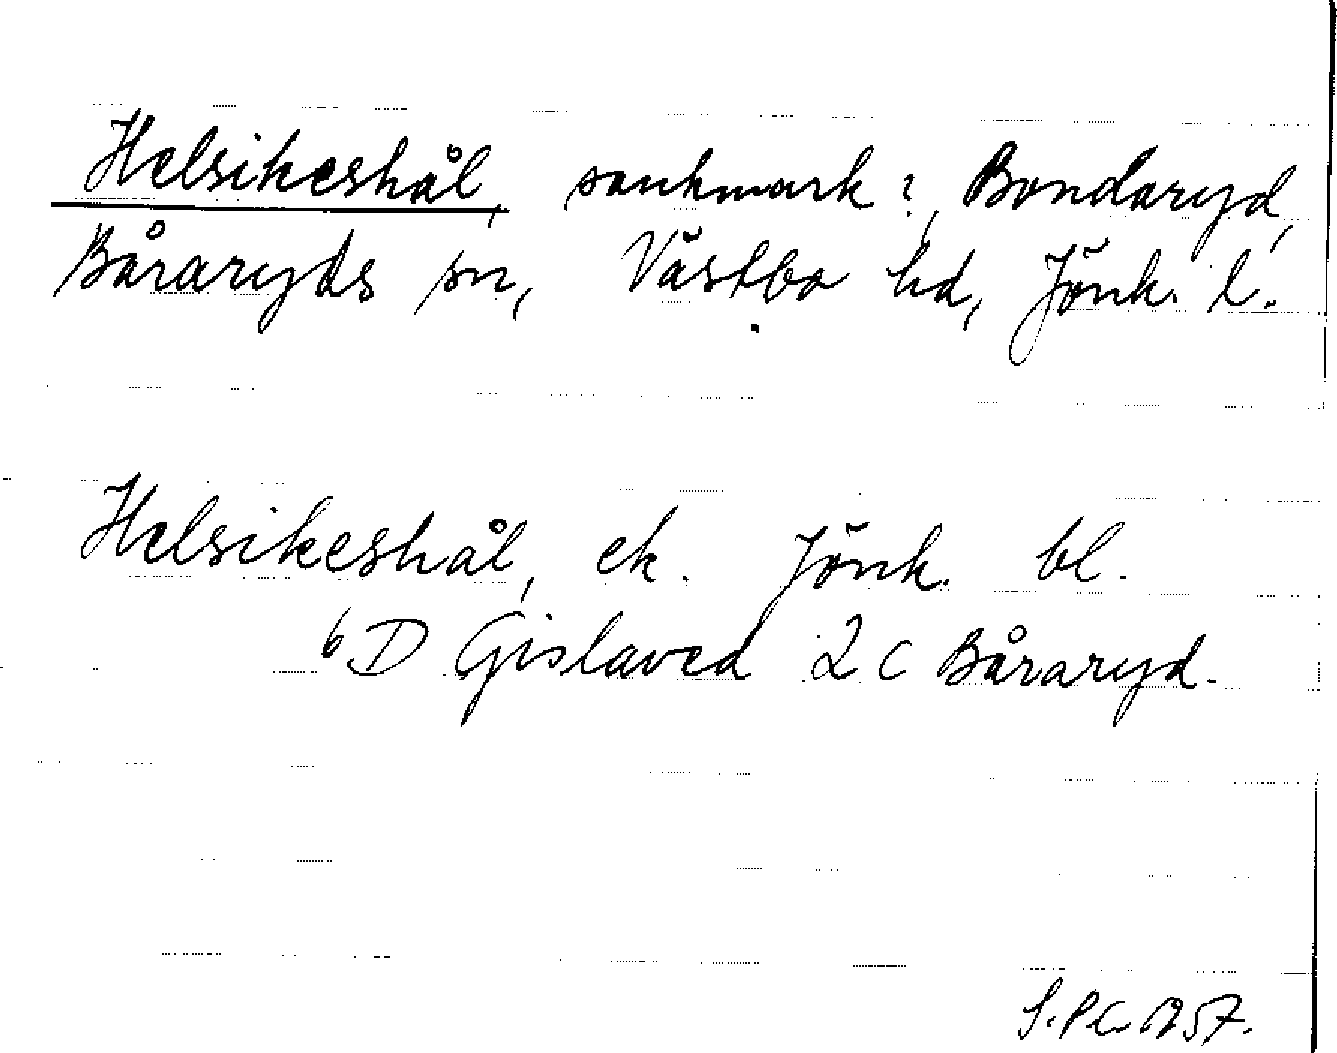 Helsikeshål, sankmark?, Bondaryd,
Båraryds sn, Västbo hd, Jönk. l.
Helsikeshål, ek. Jönk. bl.
6D Gislaved 2 c Båraryd.
S.PC. 1957.